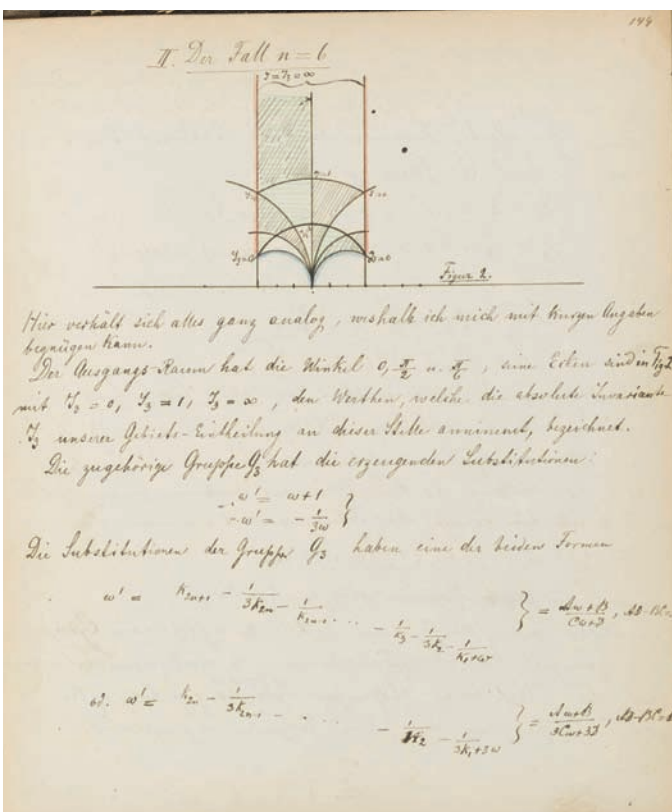 144
II. Der Fall n = 6
J = J₃ = ∞
J₃=0
Figur 2.
Hier verhält sich alles ganz analog, weshalb ich mich mit kurzen Angaben
begnügen kann.
Der Ausgangs-Raum hat die Winkel 0, π/2 u. π/6, seine Ecken sind in Fig 2
mit J₃ = 0, J₃ = 1, J₃ = ∞, den Werthen, welche die absolute Invariante
J₃ unserer Gebiets-Eintheilung an dieser Stelle annimmt, bezeichnet.
Die zugehörige Gruppe G₃ hat die erzeugenden Substitutionen:
ω' = ω+1
ω' = - 1/3ω }
Die Substitutionen der Gruppe G₃ haben eine der beiden Formen
ω' = k₂ₙ₊₁ - 1/3k₂ₙ - 1/k₂ₙ₋₁ . . . - 1/k₃ - 1/3k₂ - 1/k₁+ω } = Aω+B/Cω+D, AD-BC=
od. ω' = k₂ₙ - 1/3k₂ₙ₋₁ - . . . . - 1/k₂ - 1/3k₁+3ω } = Aω+B/3Cω+3D, AD-BC=